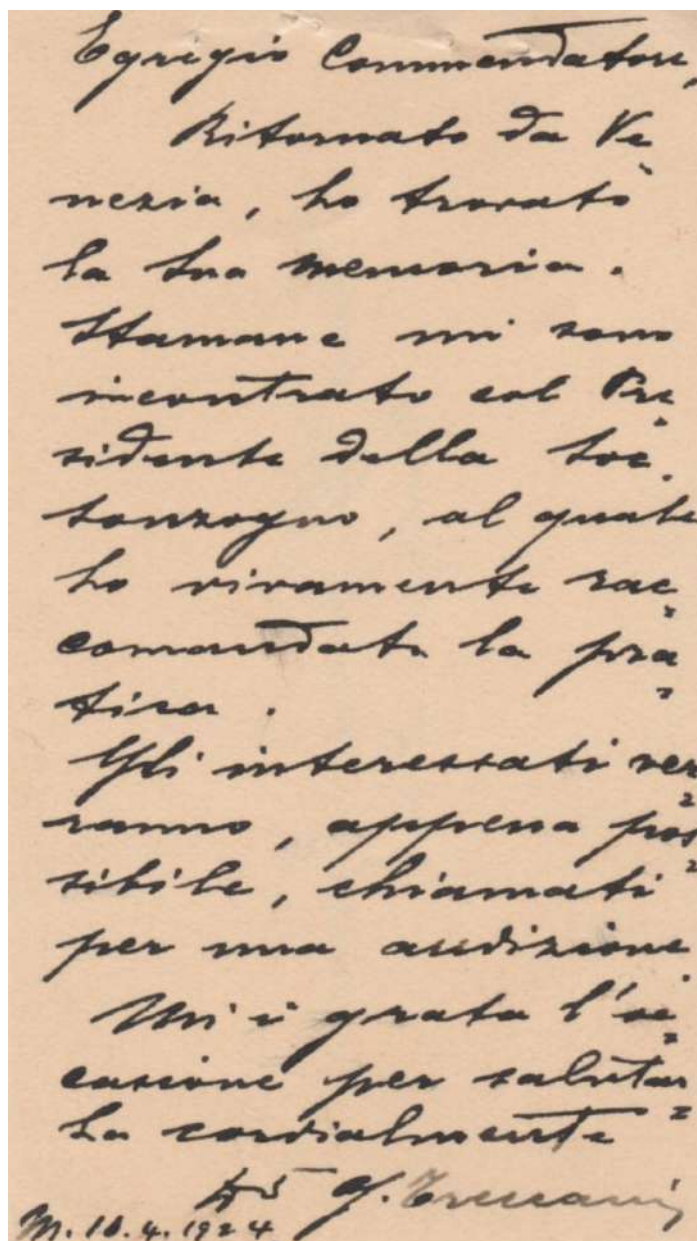 Egregio Commendatore,
Ritornato da Ve
nezia, ho trovato
la Sua memoria.
Stamane mi sono
incontrato col Pre
sidente della Soc.
Sonzogno, al quale
ho vivamente rac
comandata la pra
tica.
Gli interessati ver
ranno, appena pos
sibile, chiamati
per una audizione
Mi è grata l'oc
casione per salutar
La cordialmente
G.
M. 10.4.1924